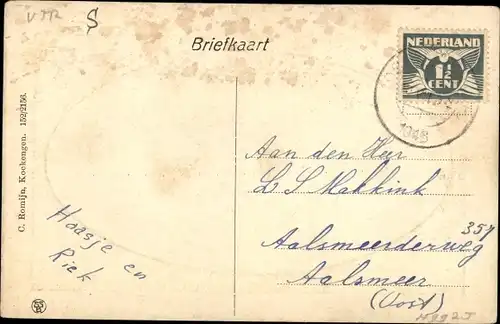 V 772
S
Briefkaart
NEDERLAND
1½
CENT
1946
C. Romijn, Kockengen. 152/2156.
Aan den Heer
L S Makkink
Aalsmeerderweg 357
Aalsmeer
(Oost)
Haasje en
Riek